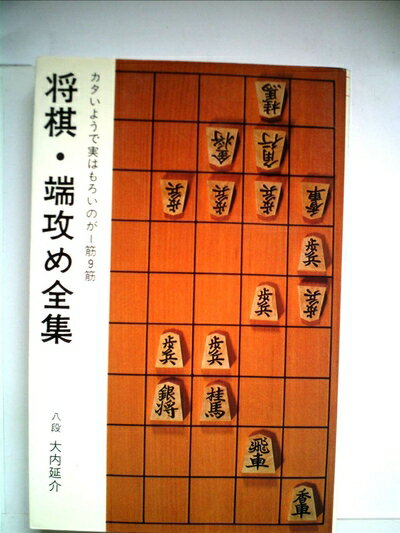 将棋・端攻め全集
カタいようで実はもろいのが1筋9筋
八段 大内延介
桂馬
金将 角行
歩兵 歩兵 歩兵 香車
歩兵
歩兵 歩兵
歩兵 歩兵
銀将 桂馬
飛車
香車